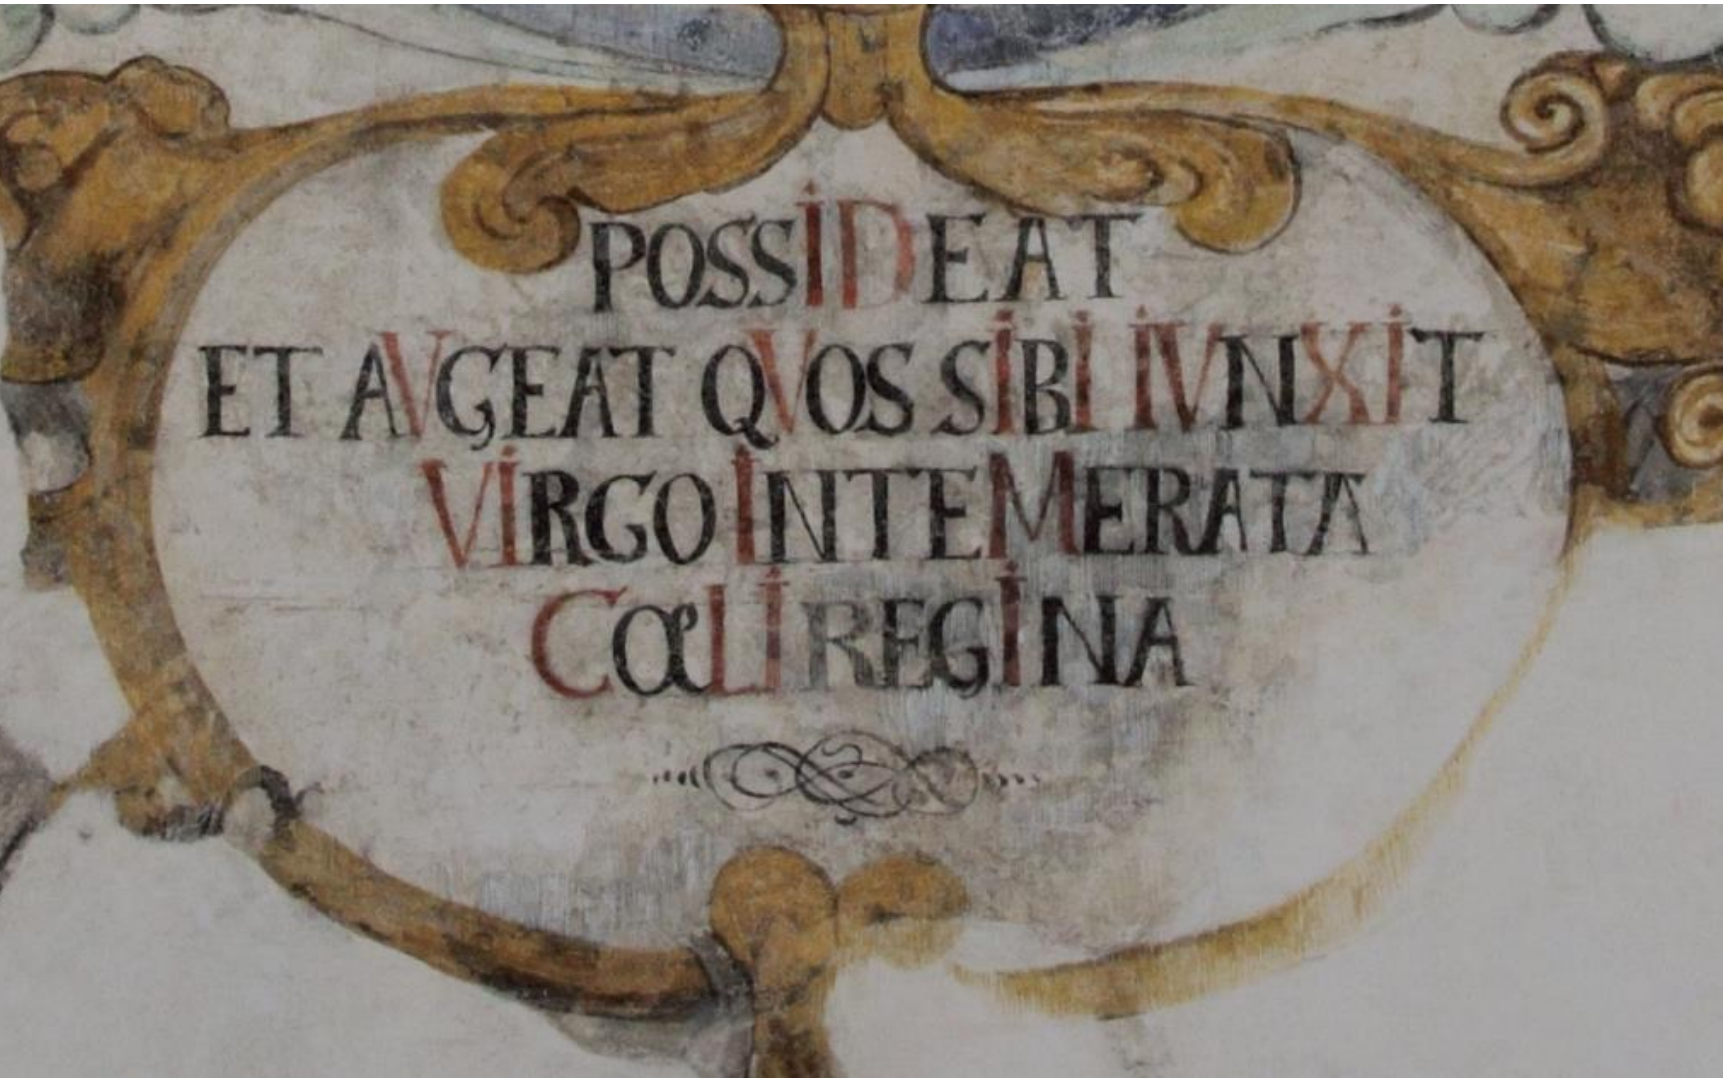 POSSIDEAT
ET AVGEAT QVOS SIBI IVNXIT
VIRGO INTEMERATA
CŒLI REGINA